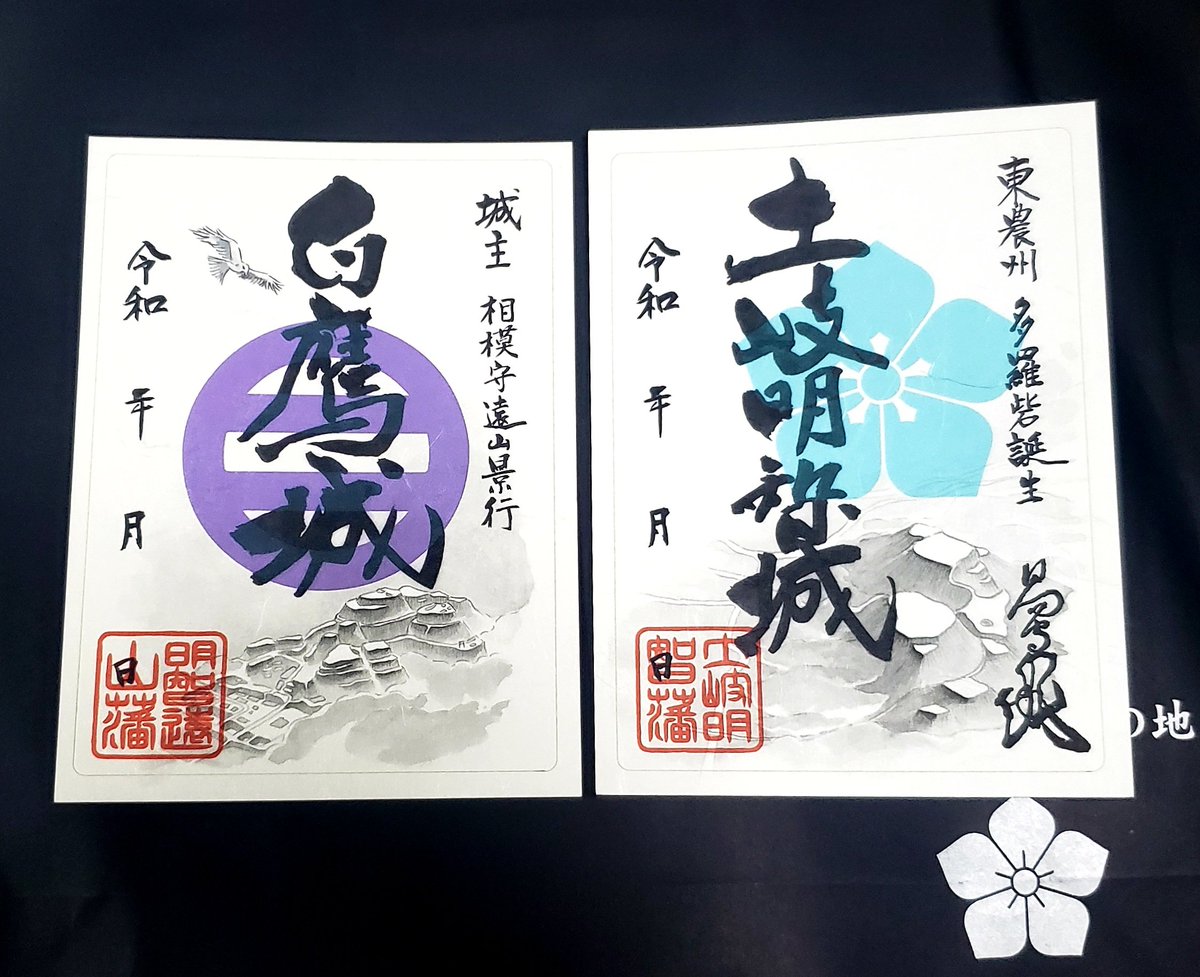 城主 相模守遠山景行
白鷹城
令和 年 月 日
明智遠山藩
東農州 多羅砦誕生
土岐明智城
令和 年 月 日
土岐明智藩
の地